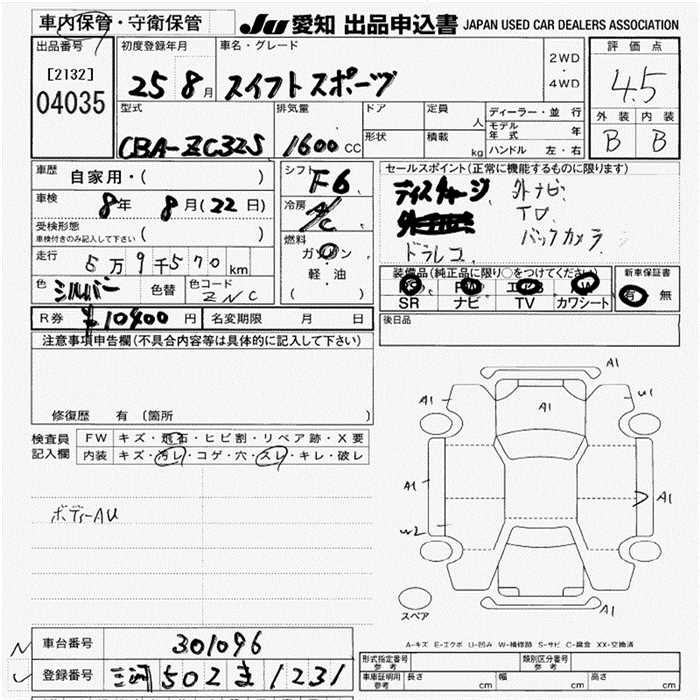 車内保管・守衛保管 JU 愛知 出品申込書 JAPAN USED CAR DEALERS ASSOCIATION
出品番号 初度登録年月 車名・グレード 2WD・4WD 評価点
[2132] 04035 25 8月 スイフトスポーツ 4.5
型式 排気量 ドア 定員 人 ディーラー・並行 外装 内装
CBA-ZC32S 1600cc 形状 積載 kg モデル年式 年 B B
ハンドル 左・右
車歴 自家用・( ) シフト F6 セールスポイント(正常に機能するものに限ります)
車検 8年 8月(22日) 冷房 A/C ディスチャージ 外ナビ
受検形態 車検付きのみ記入して下さい ( ) TV
燃料 ガソリン ドラレコ バックカメラ
走行 5万9千570km 軽油 ( ) 装備品(純正品に限り○をつけてください) 新車保証書
色 シルバー 色替 色コード ZNC PS PW エアB AW 有 無
SR ナビ TV カワシート
R券 ¥10400円 名変期限 月 日 後日品
注意事項申告欄(不具合内容等は具体的に記入して下さい)
修復歴 有 (箇所
検査員記入欄 FW キズ・飛石・ヒビ割・リペア跡・X要
内装 キズ・汚レ・コゲ・穴・スレ・キレ・破レ
ボディーAU
A1
A1 A1 U1
A1 A1
W2
スペア A1
A-キズ E-エクボ U-凹み W-補修跡 S-サビ C-腐食 XX-交換済
車台番号 301096
登録番号 三河 502 ま 1231
形式指定番号 参考 類別区分番号 参考
車庫証明用 参考 長さ cm 幅 cm 高さ cm